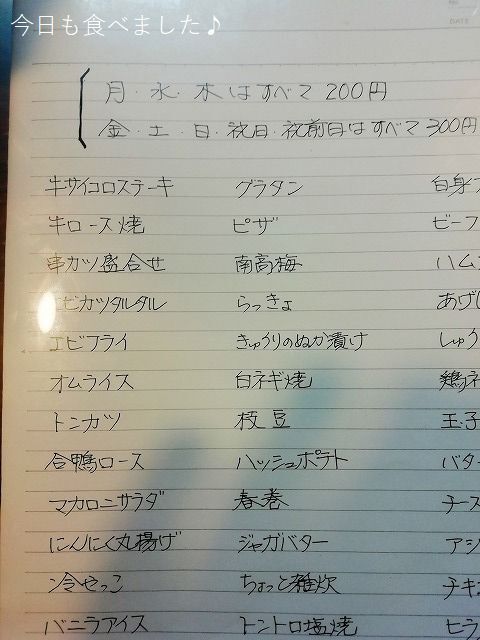 今日も食べました♪
DATE
月・水・木はすべて200円
金・土・日・祝日・祝前日はすべて300円
牛サイコロステーキ グラタン 白身
牛ロース焼 ピザ ビーフ
串カツ盛合せ 南高梅 ハム
エビカツタルタル らっきょ あげ
エビフライ きゅうりのぬか漬け しゅう
オムライス 白ネギ焼 鶏
トンカツ 枝豆 玉子
合鴨ロース ハッシュポテト バター
マカロニサラダ 春巻 チー
にんにく丸揚げ ジャガバター アジ
冷やっこ ちょっと雑炊 チキ
バニラアイス トントロ塩焼 ヒラ